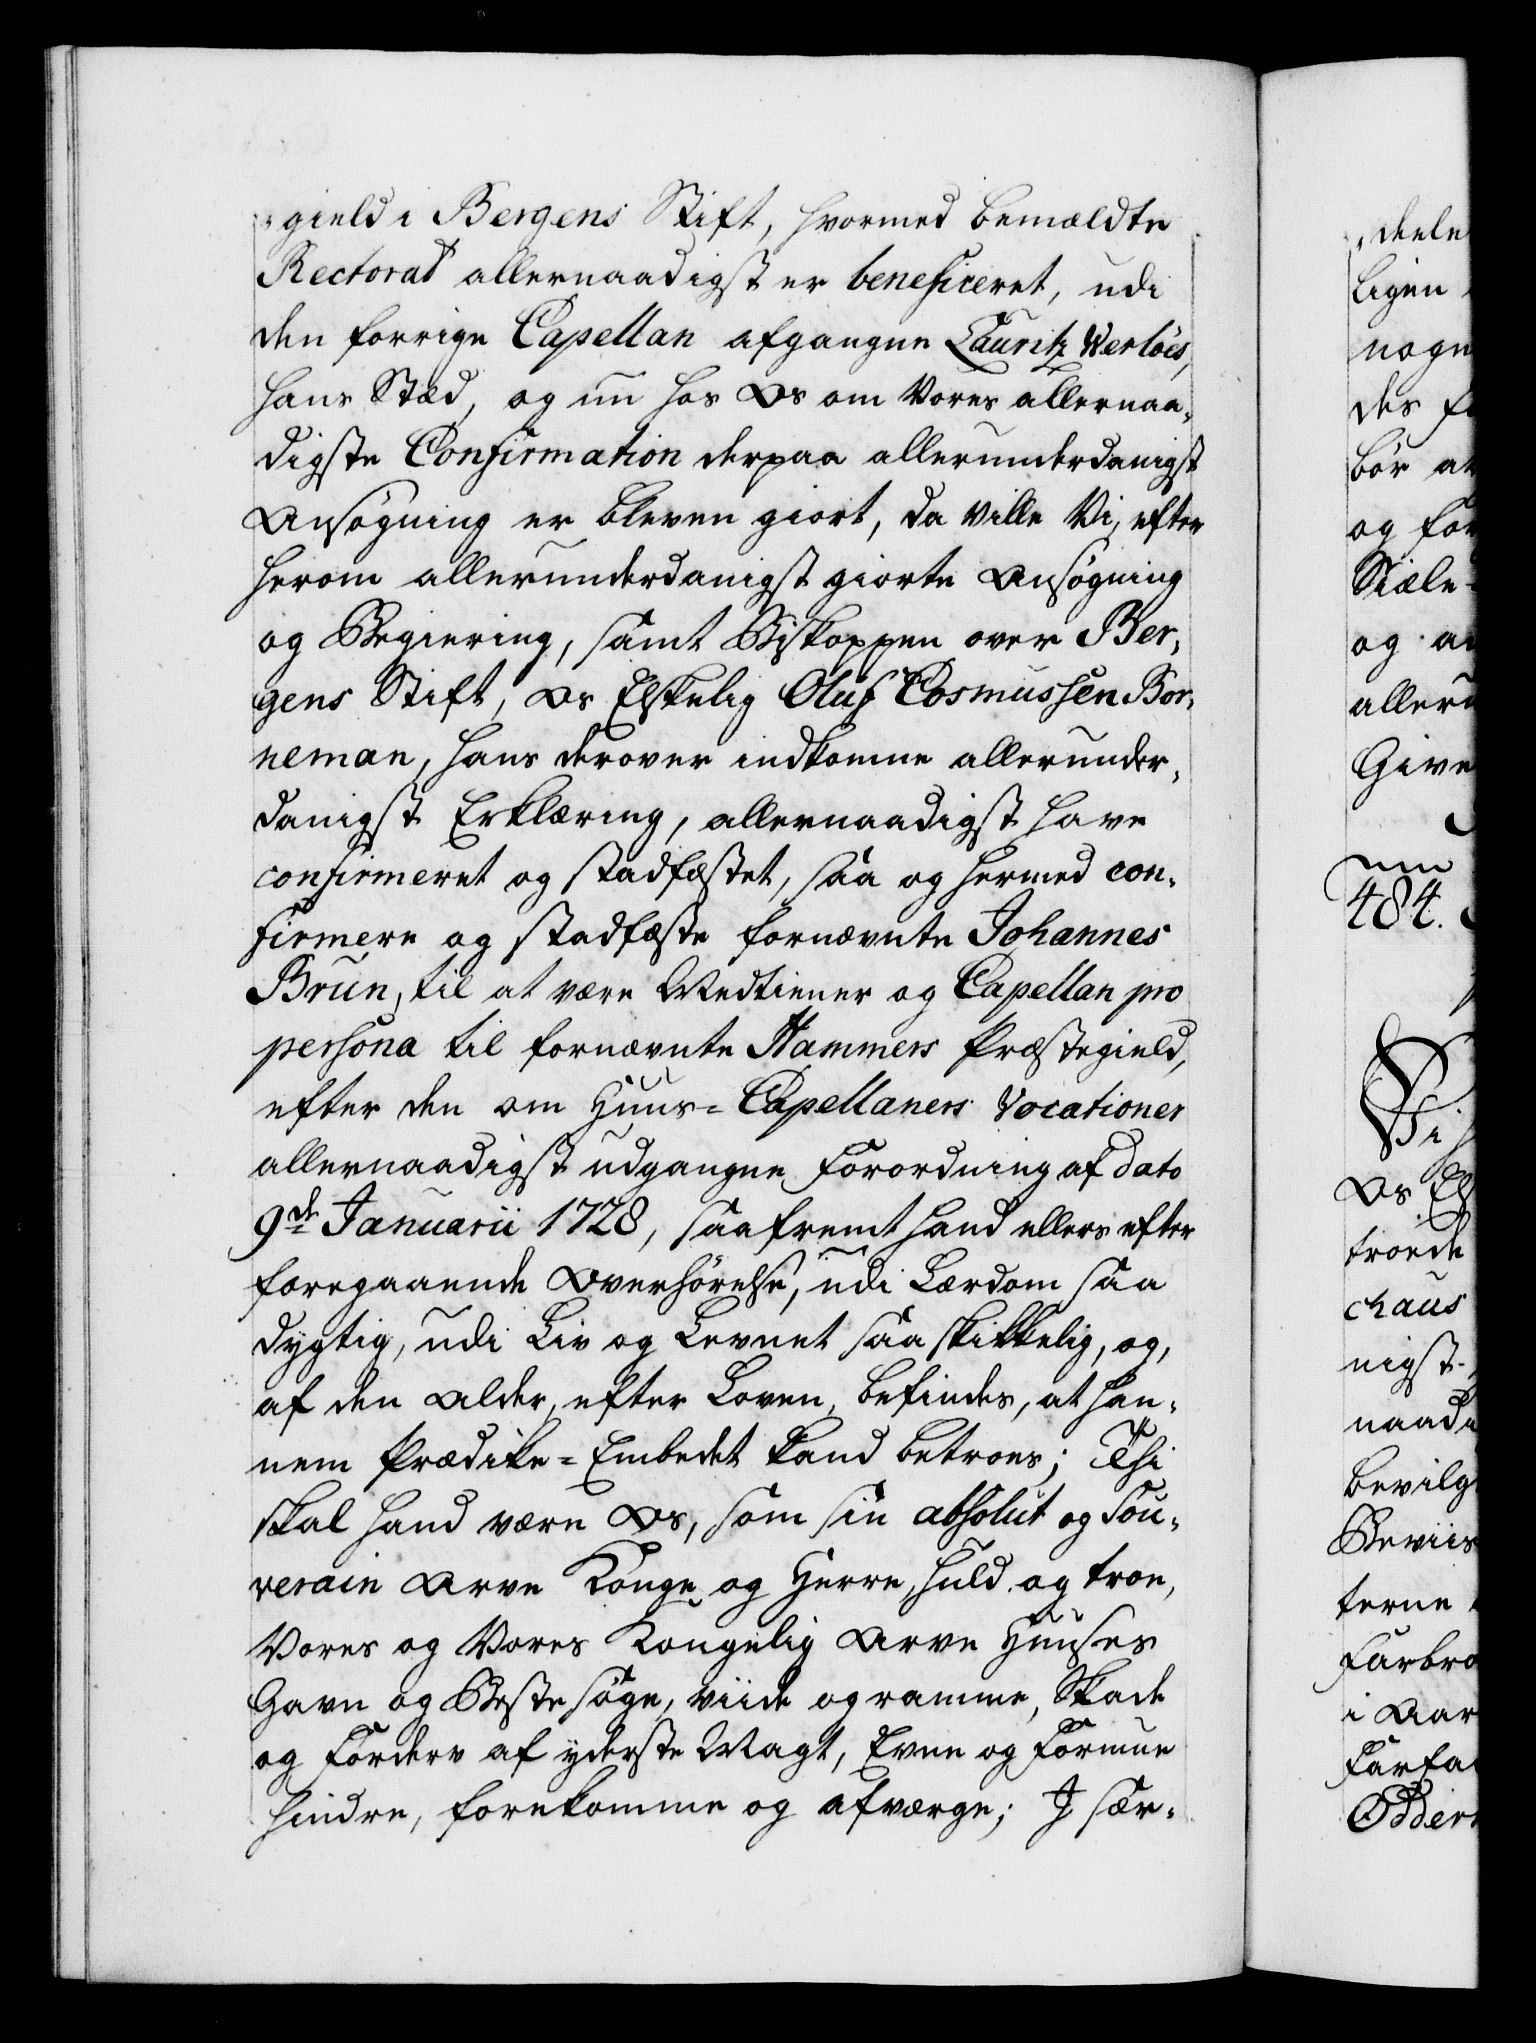 gield i Bergens Stift, hvormed bemældte
Rectorat allernaadigst er beneficeret, udi
den forrige Capellan afgangne Lauritz Werløes,
hans Stæd, og nu hos Os om Vores allernaa-
digste Confirmation derpaa allerunderdanigst
Ansøgning er bleven giort, da ville Vi, efter
herom allerunderdanigst giorte Ansøgning
og Begiering, samt Biskoppen over Ber-
gens Stift, Os Elskelig Oluf Cosmussen Bor-
neman, hans derover indkomne allerunder-
danigst Erklæring, allernaadigst have
confirmeret og stadfæstet, saa og hermed con-
firmere og stadfæste fornævnte Johannes
Brun, til at være Medtiener og Capellan pro
persona til fornævnte Hammers Præstegield,
efter den om Huus-Capellaners Vocationer
allernaadigst udgangne Forordning af dato
9de Januarii 1728, saafremt hand ellers efter
foregaaende Overhørelse, udi Lærdom saa
dygtig, udi Liv og Levnet saa skikkelig, og,
af den Alder, efter Loven, befindes, at han-
nem Prædike-Embedet kand betroes; Thi
skal hand være Os, som sin absolut og Sou-
verain Arve Konge og Herre, huld og troe,
Vores og Vores Kongelig Arve Huuses
Gavn og Beste søge, viide og ramme, Skade
og Forderv af yderste Magt, Evne og Formue
hindre, forekomme og afværge; J sær-
deele
ligen
nogn
des
bør at
og for
Siæle-
og
aller
Give
484.
Vi
Os Els
troede
chaus
nigst
naad
bevilg
Beviis
terne
Farbro
i Aar
Farfa
Odder